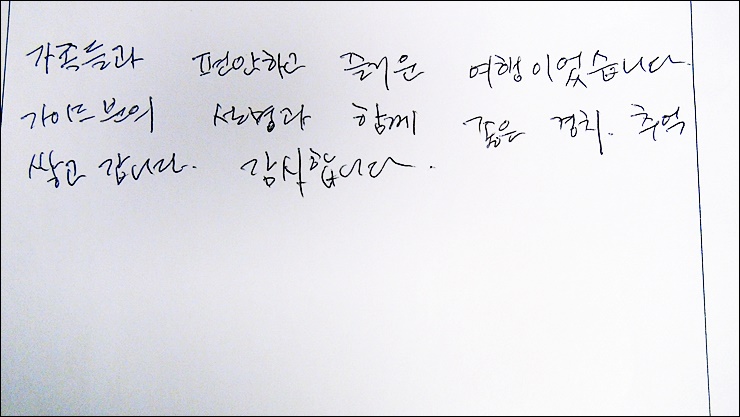 가족들과 편안하고 즐거운 여행이었습니다.
가이드분의 설명과 함께 좋은 경치. 추억
쌓고 갑니다. 감사합니다.